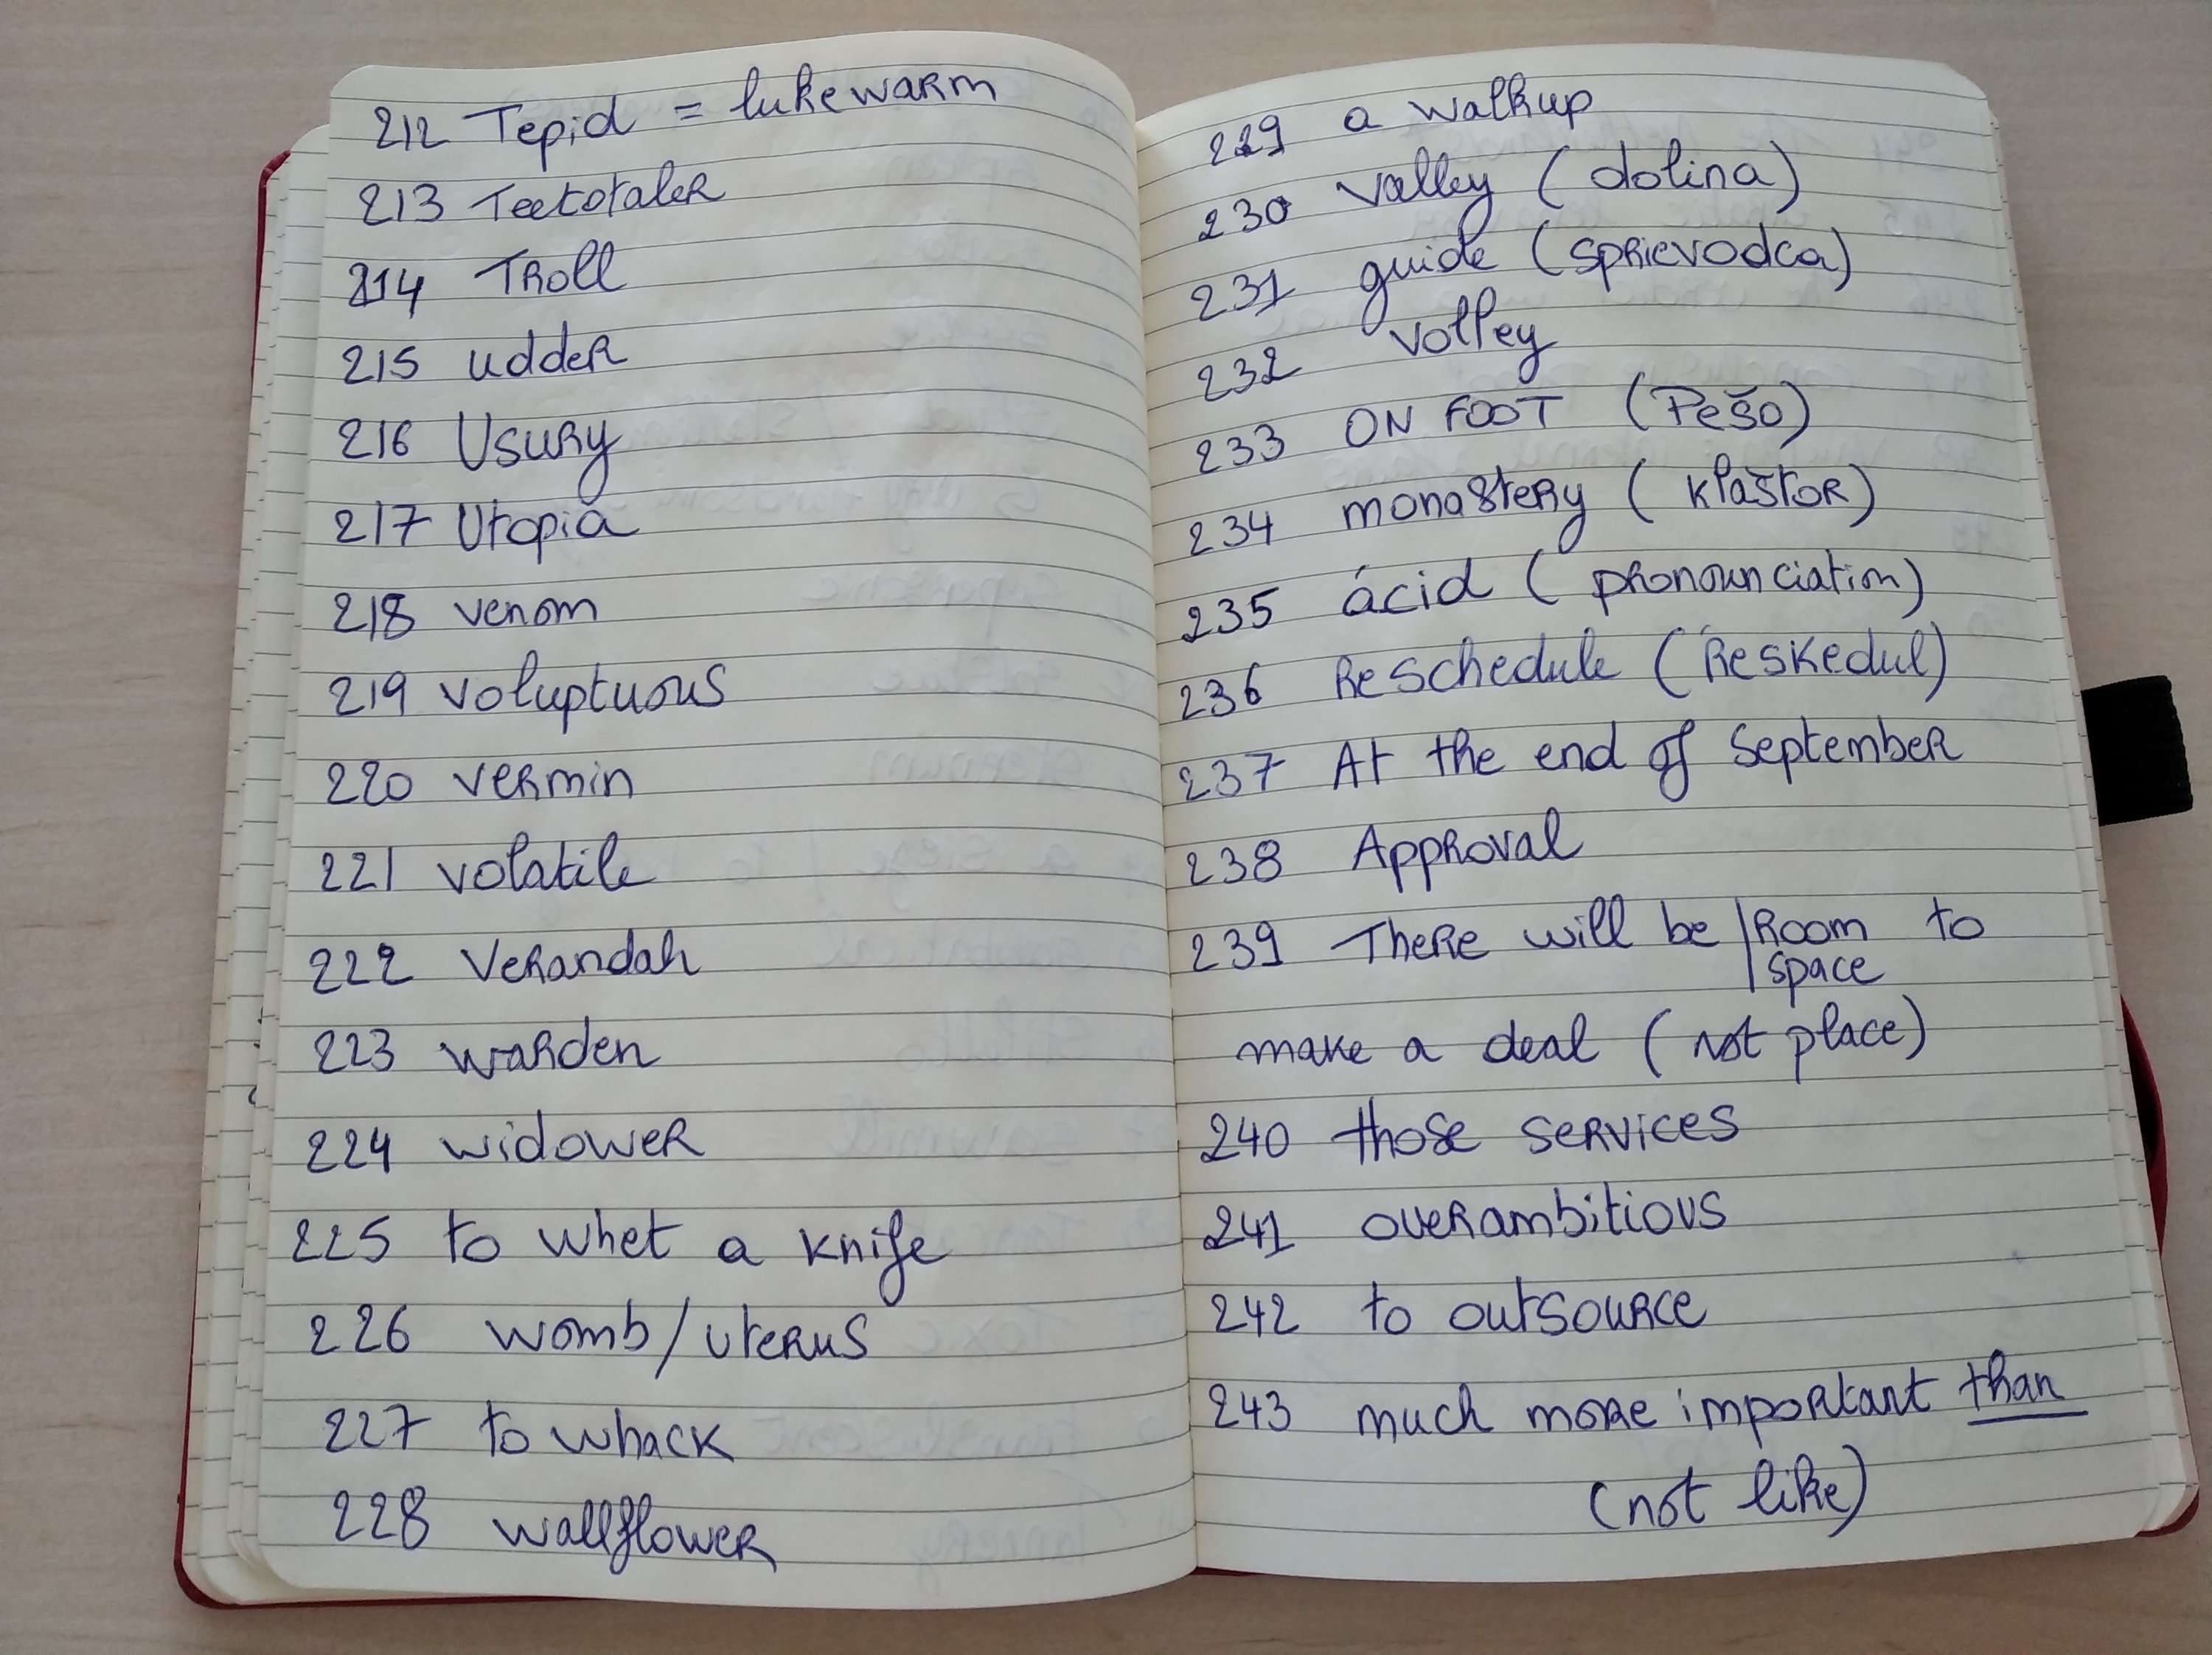 212 Tepid = lukewarm
213 Teetotaler
214 Troll
215 udder
216 Usury
217 Utopia
218 venom
219 voluptuous
220 vermin
221 volatile
222 Verandah
223 warden
224 widower
225 to whet a knife
226 womb/uterus
227 to whack
228 wallflower
229 a walkup
230 valley (dolina)
231 guide (sprievodca)
232 volley
233 ON FOOT (Pešo)
234 monastery (kláštor)
235 ácid (pronounciation)
236 Reschedule (Reskedul)
237 At the end of September
238 Approval
239 There will be | Room to
space
make a deal (not place)
240 those services
241 overambitious
242 to outsource
243 much more important than
(not like)